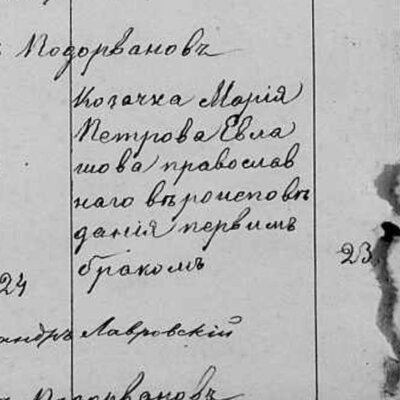 ъ Подорвановъ
Козачка Марія
Петрова Евла
шова православ
наго вѣроисповѣ
данія первымъ
бракомъ
23.
24
андръ Лавровскій
ъ Подорвановъ